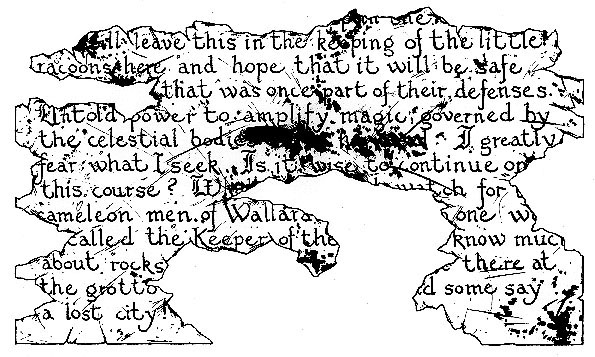 ill leave this in the keeping of the little
racoons here and hope that it will be safe
that was once part of their defenses.
Untold power to amplify magic, governed by
the celestial bodies I greatly
fear what I seek. Is it wise to continue on
this course? watch for
cameleon men of Wallara one
called the Keeper of the know muc
about rocks there at
the grotto d some say
a lost city